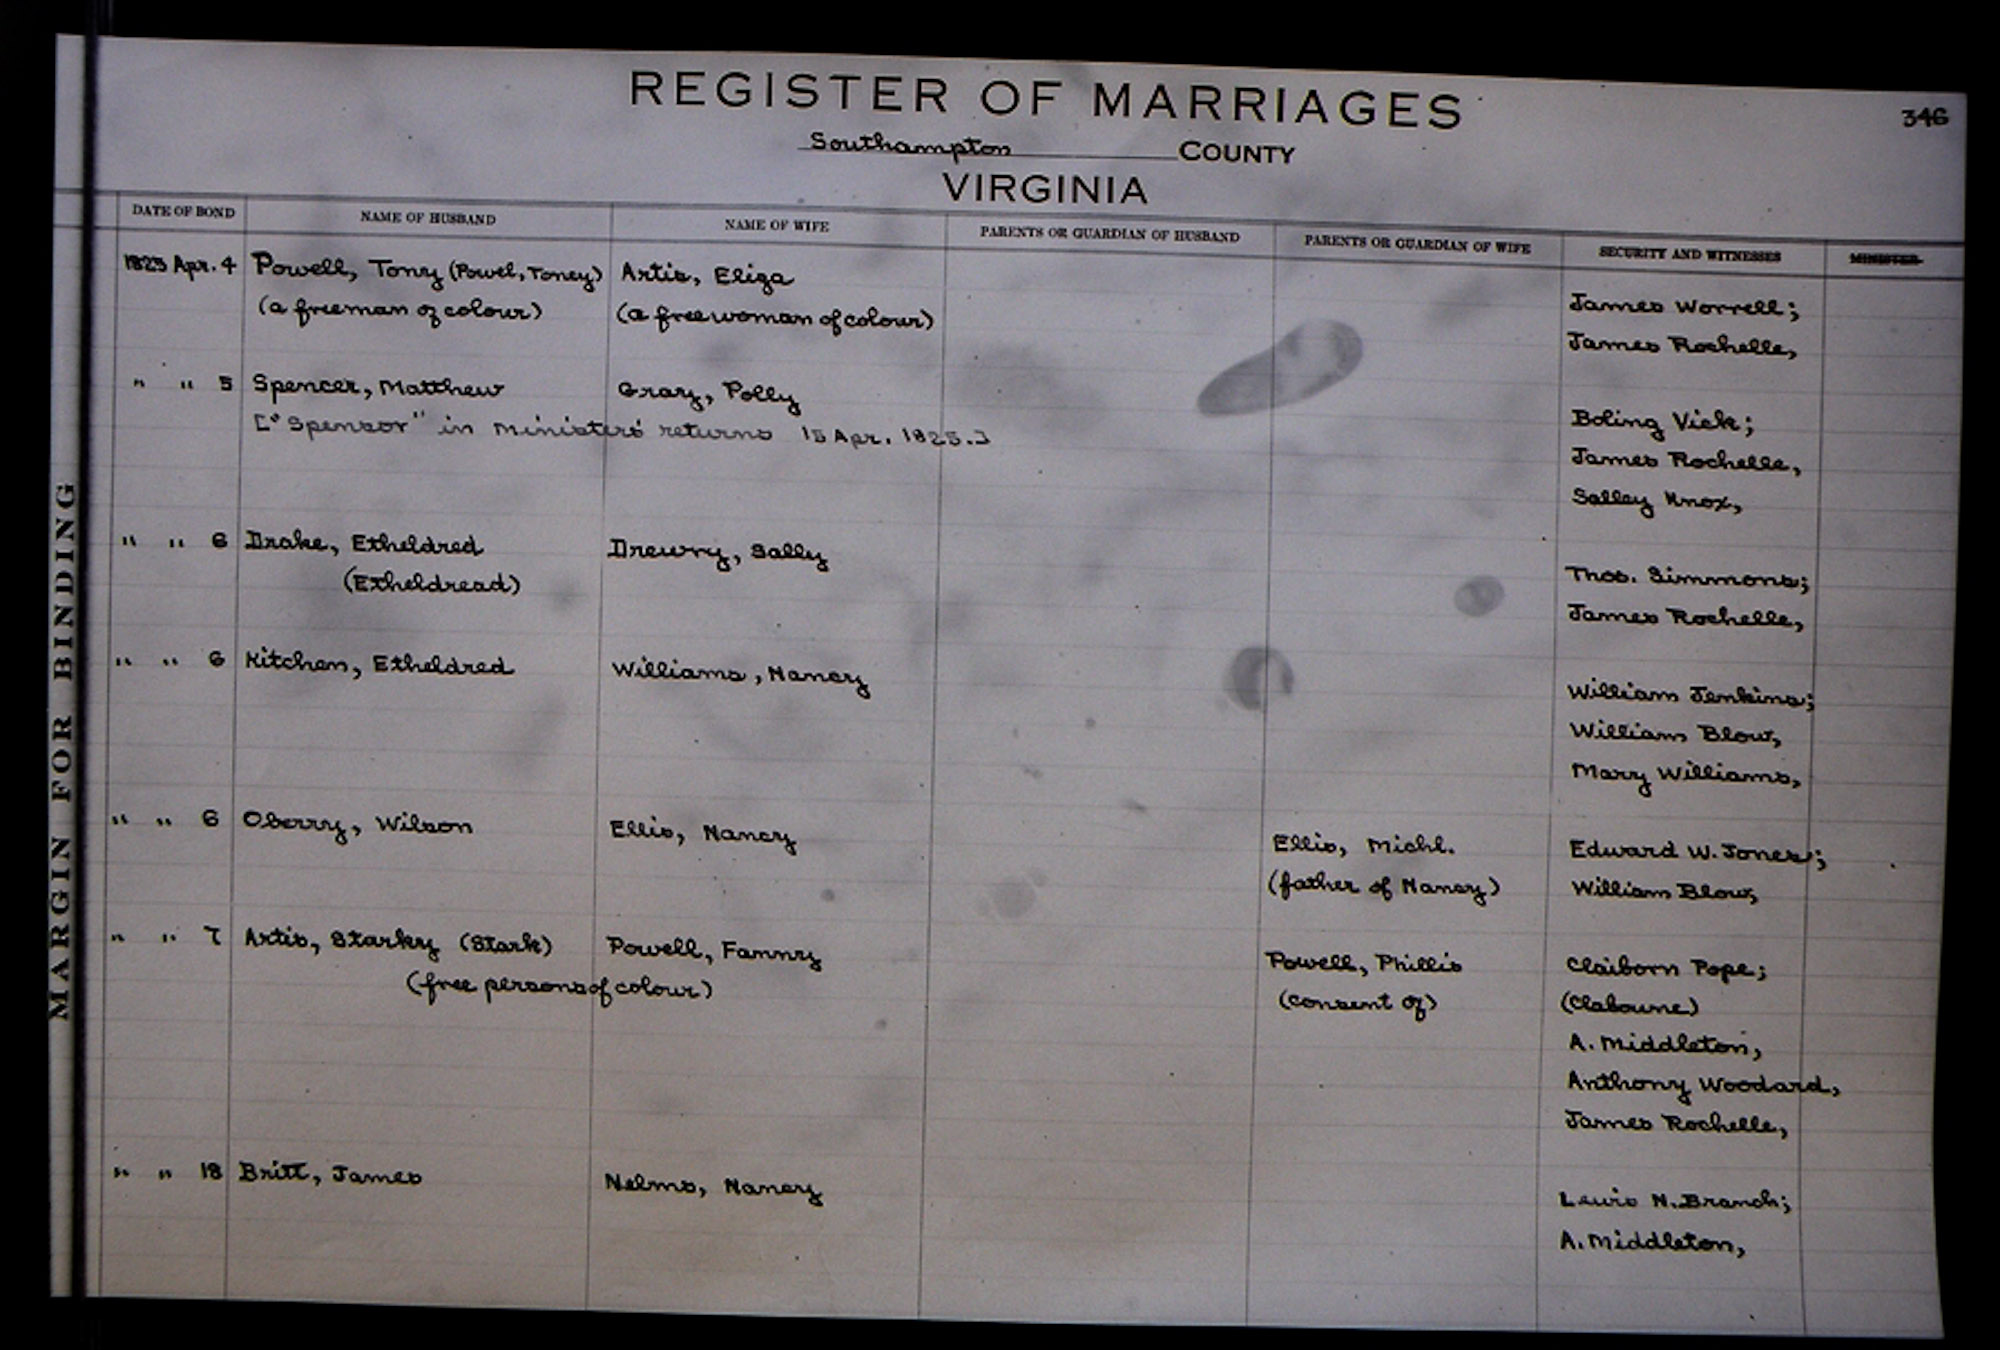 REGISTER OF MARRIAGES
346
Southampton COUNTY
VIRGINIA
DATE OF BOND NAME OF HUSBAND NAME OF WIFE PARENTS OR GUARDIAN OF HUSBAND PARENTS OR GUARDIAN OF WIFE SECURITY AND WITNESSES MINISTER
1825 Apr. 4 Powell, Tony (Powel, Toney) Artis, Eliza
(a freeman of colour) (a free woman of colour) James Worrell;
James Rochelle,
" " 5 Spencer, Matthew Gray, Polly
["Spensor" in ministers' returns 15 Apr. 1825.] Boling Vick;
James Rochelle,
Salley Knox,
" " 6 Drake, Etheldred Drewry, Sally
(Etheldread) Thos. Simmons;
James Rochelle,
" " 6 Kitchen, Etheldred Williams, Nancy
William Jenkins;
William Blow,
Mary Williams,
" " 6 Oberry, Wilson Ellis, Nancy Ellis, Michl. Edward W. Jones;
(father of Nancy) William Blow,
" " 7 Artis, Starky (Stark) Powell, Fanny Powell, Phillis Claiborn Pope;
(free persons of colour) (consent of) (Clabourne)
A. Middleton,
Anthony Woodard,
James Rochelle,
" " 18 Britt, James Nelms, Nancy
Lewis N. Branch;
A. Middleton,
MARGIN FOR BINDING